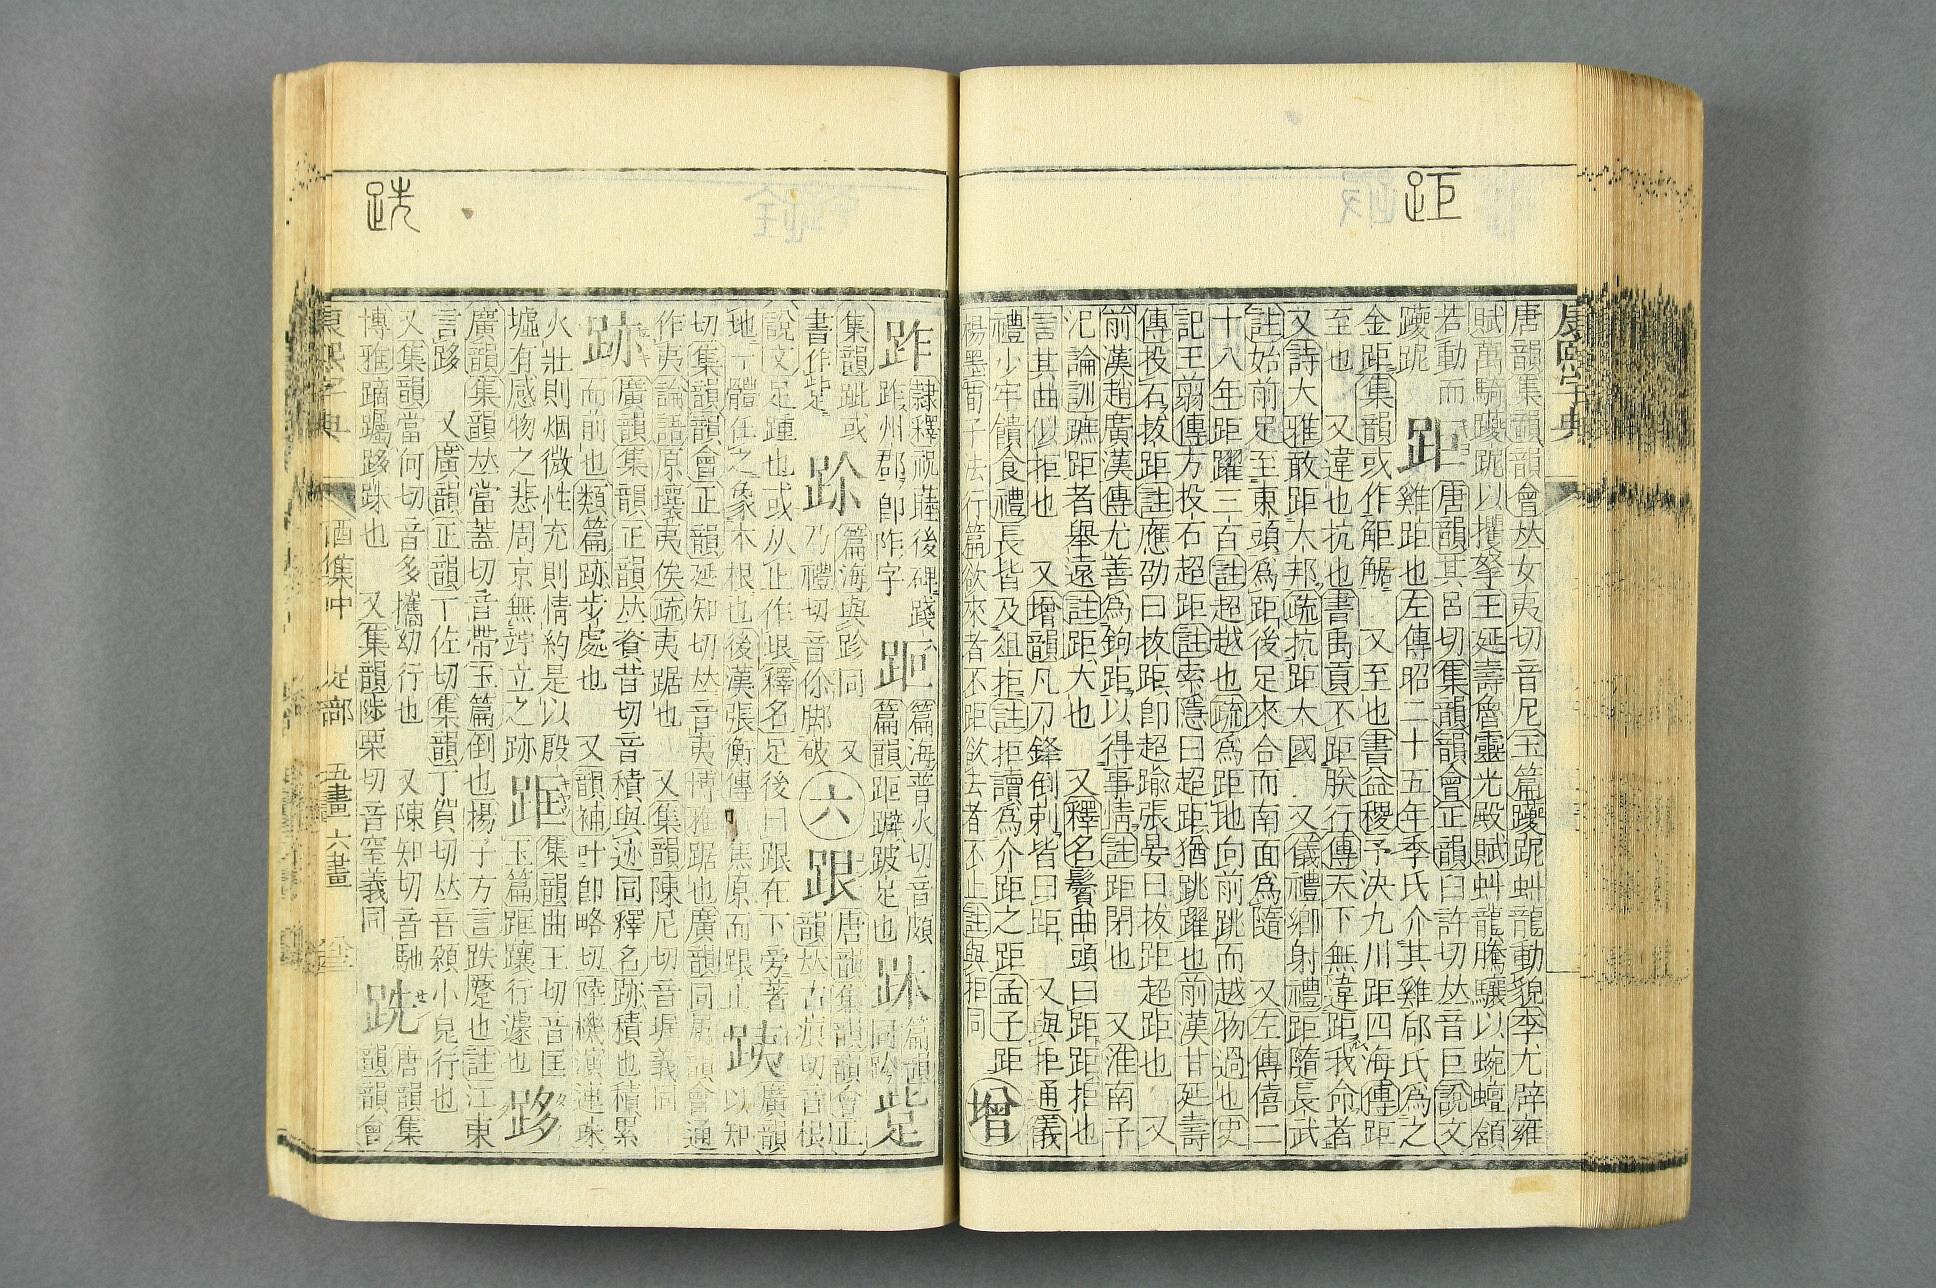 康熙字典
距
唐韻集韻韻會𠀤女夷切音尼玉篇躨跜虯龍動貌李尤辟雍
賦萬騎躨跜以攫拏王延壽魯靈光殿賦虯龍騰驤以蜿蟺頷
若動而躨跜
距 唐韻其呂切集韻韻會正韻臼許切𠀤音巨說文
雞距也左傳昭二十五年季氏介其雞郈氏爲之
金距集韻或作 又至也書益稷予決九川距四海傳距
至也 又違也抗也書禹貢不距朕行傳天下無違距我命者
又詩大雅敢距大邦疏抗距大國 又儀禮鄕射禮距隨長武
註始前足至東頭爲距後足來合而南面爲隨 又左傳僖二
十八年距躍三百註超越也疏爲距地向前跳而越物過也史
記王翦傳方投石超距註索隱曰超距猶跳躍也前漢甘延壽
傳投石拔距註應劭曰拔距卽超踰張晏曰拔距超距也 又
前漢趙廣漢傳尤善爲鉤距以得事情註距閉也 又淮南子
氾論訓蹠距者舉遠註距大也 又釋名鬚曲頭曰距距拒也
言其曲似拒也 又增韻凡刀鋒倒刺皆曰距 又與拒通儀
禮少牢饋食禮長皆及俎拒註拒讀爲介距之距孟子距
楊墨荀子法行篇欲來者不距欲去者不止註與拒同
增
跣
隸釋祝睦後碑踐六
州郡卽阼字
篇海普火切音頗
篇韻 躃跛足也
篇韻
同
集韻跐或
書作
篇海與跈同 又
乃禮切音伱脚破
六
跟 唐韻集韻韻會正
韻𠀤古痕切音根
說文足踵也或从止作 釋名足後曰跟在下旁著
地一體任之象木根也後漢張衡傳 焦原而跟止
跠 廣韻以知
切集韻韻會正韻延知切𠀤音夷博雅踞也廣韻同 韻會通
作夷論語原壤夷俟疏夷踞也 又集韻陳尼切音墀義同
跡 廣韻集韻正韻𠀤資昔切音積與迹同釋名跡積也積累
而前也類篇跡步處也 又韻補叶卽略切陸機演連珠
火壯則烟微性充則情約是以殷
墟有感物之悲周京無竚立之跡
集韻曲王切音匡
玉篇 躟行遽也
跢
廣韻集韻𠀤當蓋切音帶玉篇倒也揚子方言跌蹷也註江東
言跢 又廣韻正韻丁佐切集韻丁賀切𠀤音 小兒行也
又集韻當何切音多攜幼行也 又陳知切音馳
博雅蹢躅跢跦也 又集韻陟栗切音窒義同
跣 唐韻集
韻韻會
康熙字典 酉集中 足部 五畫六畫